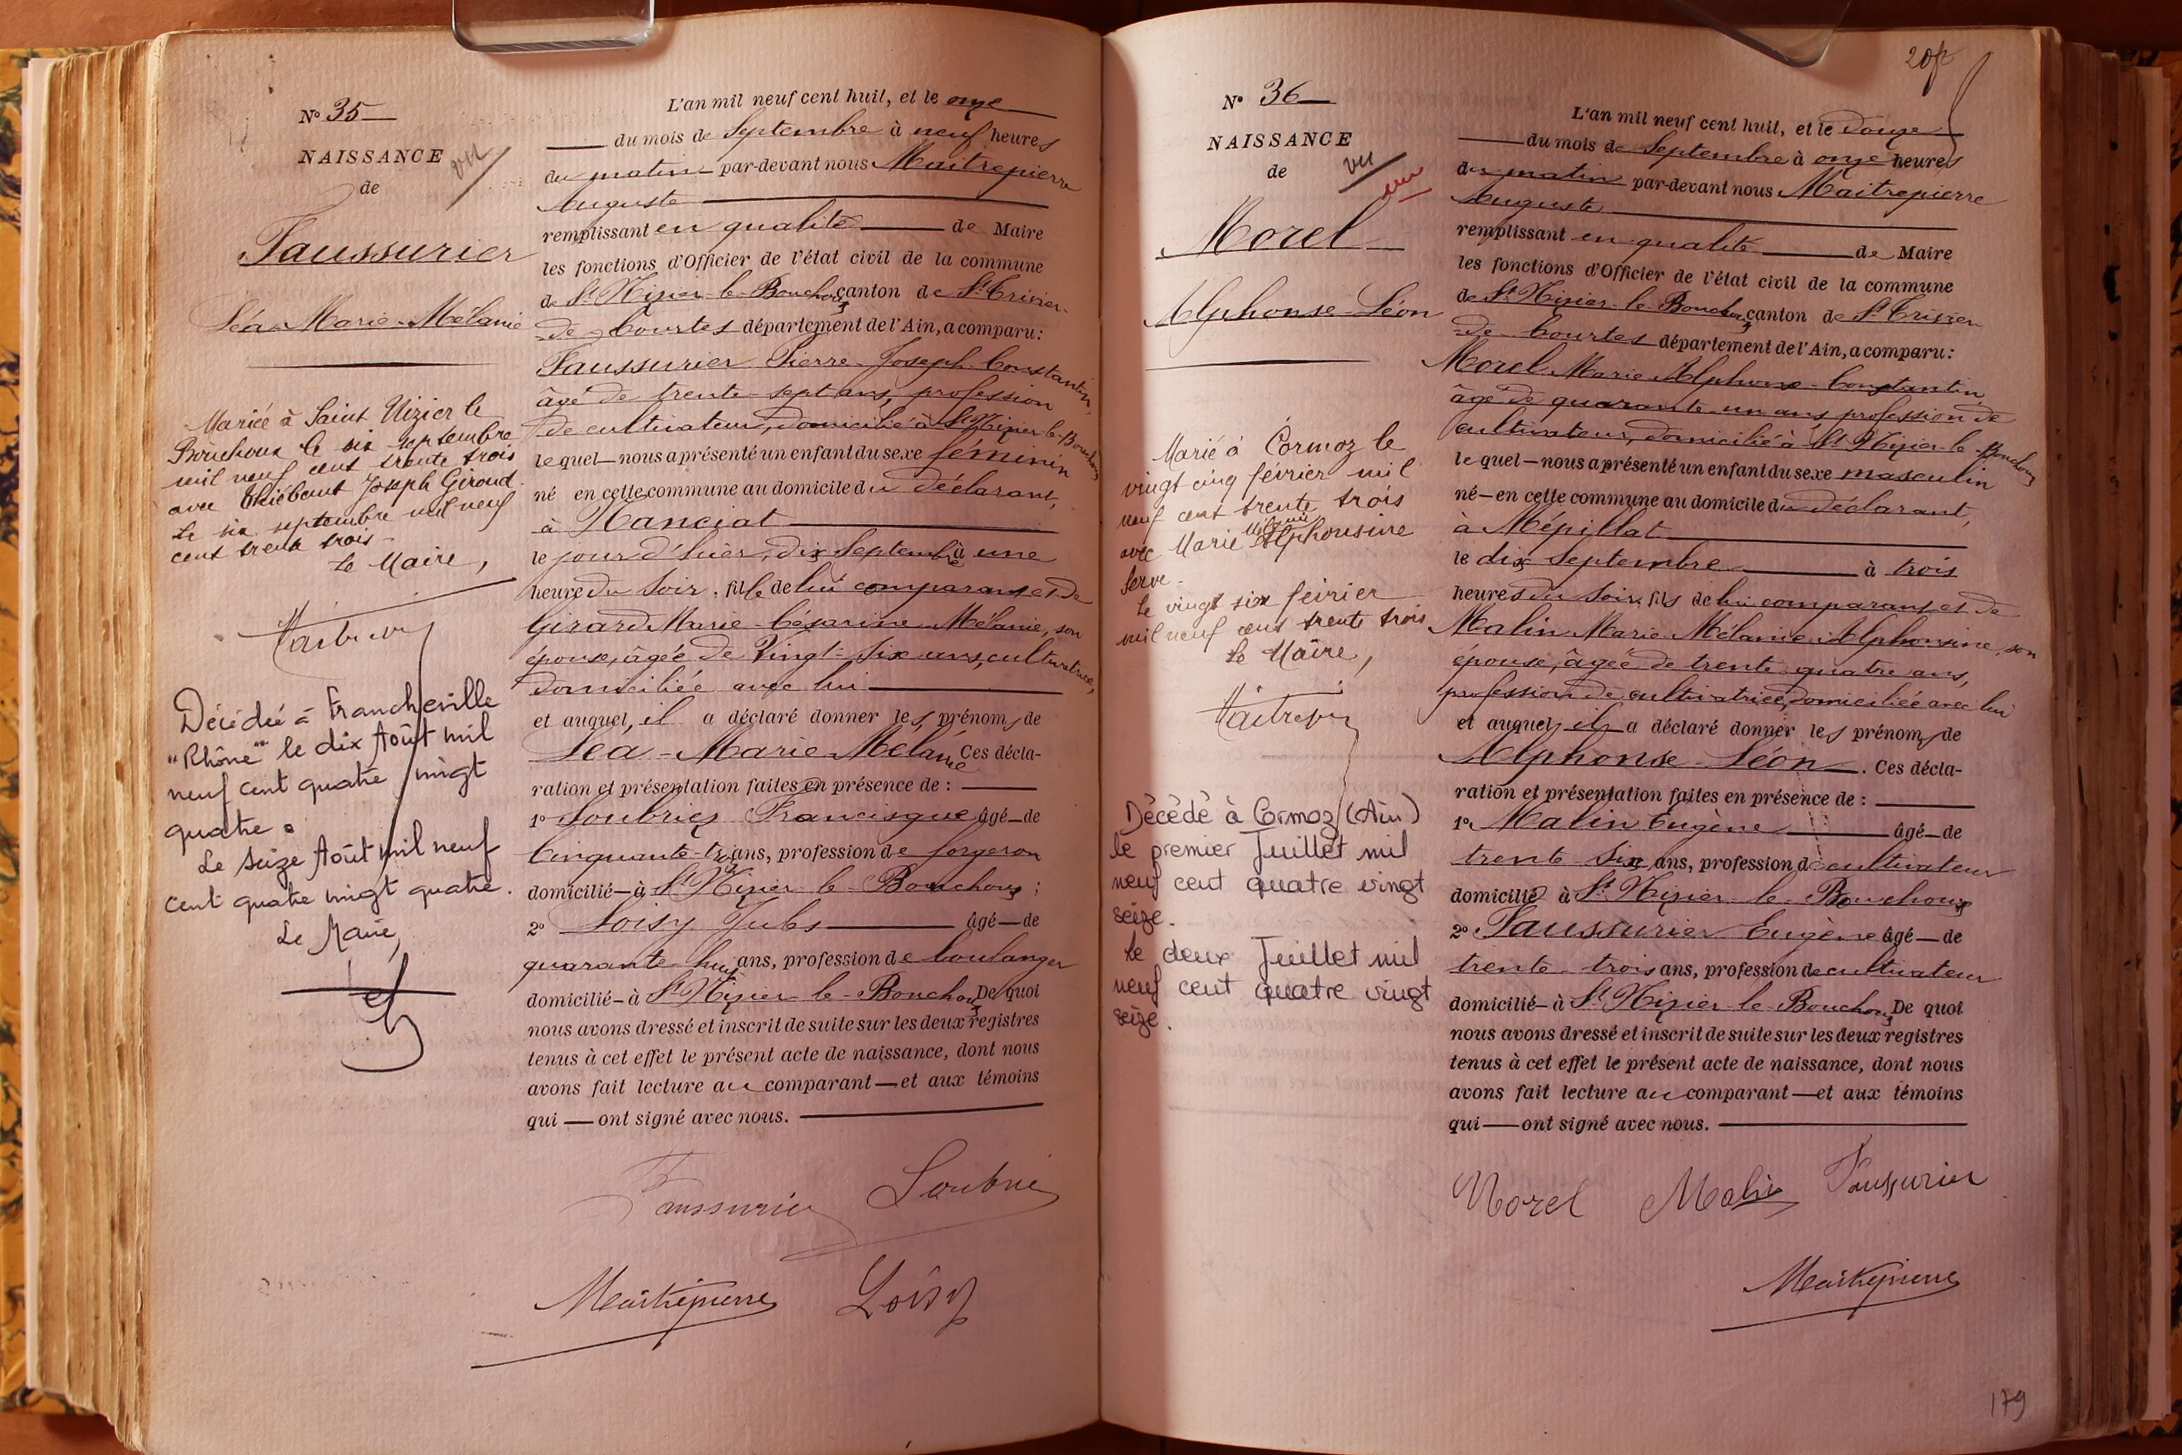 Nº 35
NAISSANCE
vu
de
Faussurier
Léa-Marie-Mélanie
Mariée à Saint Nizier le
Bouchoux le six septembre
mil neuf cent trente trois
avec Thiébaut Joseph Giroud.
Le six septembre mil neuf
cent trente trois
Le Maire,
Décédée à Francheville
"Rhône" le dix Août mil
neuf cent quatre vingt
quatre.
Le seize Août mil neuf
cent quatre vingt quatre.
Le Maire,
L'an mil neuf cent huit, et le onze
du mois de Septembre à neuf heures
du matin par-devant nous Maitrepierre
Auguste
remplissant en qualité de Maire
les fonctions d'Officier de l'état civil de la commune
de St Nizier-le-Bouchoux canton de St Trivier-
-de-Courtes département de l'Ain, a comparu:
Faussurier Pierre-Joseph-Constantin,
âgé de trente-sept ans, profession
de cultivateur, domicilié à St Nizier-le-Bouchoux
lequel nous a présenté un enfant du sexe féminin
né en cette commune au domicile du déclarant,
à Nanciat
le jour d'hier, dix Septembre à une
heure du soir, fille de lui comparant et de
Girard Marie-Césarine-Mélanie, son
épouse, âgée de Vingt-six ans, cultivatrice,
domiciliée avec lui
et auquel, il a déclaré donner les prénoms de
Léa-Marie-Mélanie Ces décla-
ration et présentation faites en présence de :
1º Soubries Francisque âgé de
Cinquante-trois ans, profession de forgeron
domicilié à St Nizier-le-Bouchoux ;
2º Loisy Jules âgé de
quarante huit ans, profession de boulanger
domicilié à St Nizier-le-Bouchoux De quoi
nous avons dressé et inscrit de suite sur les deux registres
tenus à cet effet le présent acte de naissance, dont nous
avons fait lecture au comparant et aux témoins
qui ont signé avec nous.
Faussurier Soubrie
Maitrepierre Loisy
20f
Nº 36
NAISSANCE
vu
de
Morel
Alphonse-Léon
Marié à Cormoz le
vingt cinq février mil
neuf cent trente trois
avec Marie Alphonsine
Serve.
Le vingt six février
mil neuf cent trente trois
Le Maire,
Décédé à Cormoz (Ain)
le premier Juillet mil
neuf cent quatre vingt
seize.
Le deux Juillet mil
neuf cent quatre vingt
seize.
L'an mil neuf cent huit, et le douze
du mois de Septembre à onze heures
du matin par-devant nous Maitrepierre
Auguste
remplissant en qualité de Maire
les fonctions d'Officier de l'état civil de la commune
de St Nizier-le-Bouchoux canton de St Trivier
-de-Courtes département de l'Ain, a comparu:
Morel Marie Alphonse-Constantin,
âgé de quarante-un ans profession de
cultivateur, domicilié à St Nizier-le-Bouchoux
lequel nous a présenté un enfant du sexe masculin
né en cette commune au domicile du déclarant,
à Mépillat
le dix Septembre à trois
heures du soir, fils de lui comparant et de
Malin Marie Mélanie Alphonsine, son
épouse, âgée de trente quatre ans,
profession de cultivatrice, domiciliée avec lui
et auquel il a déclaré donner les prénoms de
Alphonse-Léon. Ces décla-
ration et présentation faites en présence de :
1º Malin Eugène âgé de
trente-six ans, profession de cultivateur
domicilié à St Nizier-le-Bouchoux
2º Faussurier Eugène âgé de
trente-trois ans, profession de cultivateur
domicilié à St Nizier-le-Bouchoux De quoi
nous avons dressé et inscrit de suite sur les deux registres
tenus à cet effet le présent acte de naissance, dont nous
avons fait lecture au comparant et aux témoins
qui ont signé avec nous.
Morel Malin Faussurier
Maitrepierre
179